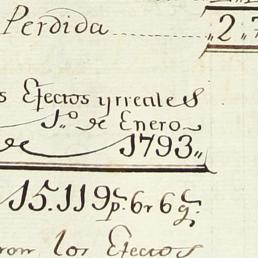 Perdida 2.7
s Efectos yrreales
1.º de Enero
de 1793.,
15.119 p.s 6 r 6 q.s
ron los Efectos